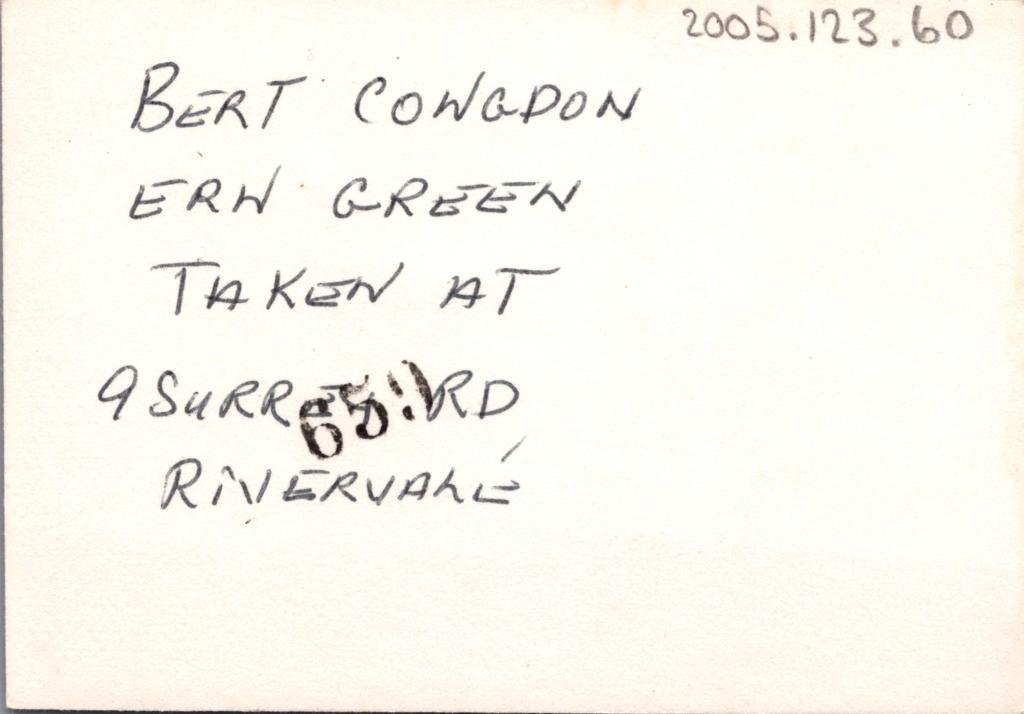 2005.123.60
BERT CONGDON
ERN GREEN
TAKEN AT
9 SURREY RD
RIVERVALE